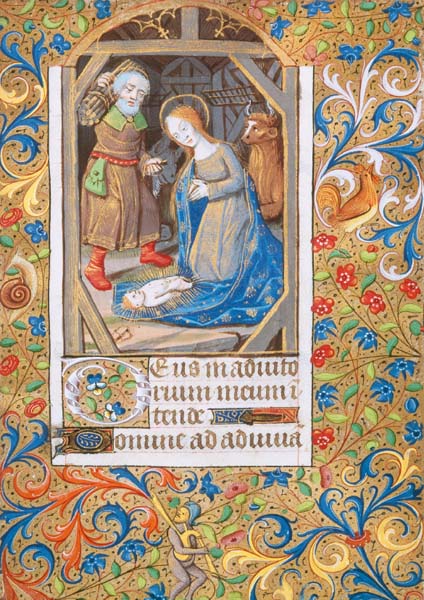 Deus in adiuto
rium meum i
tende
Domine ad adiuuā